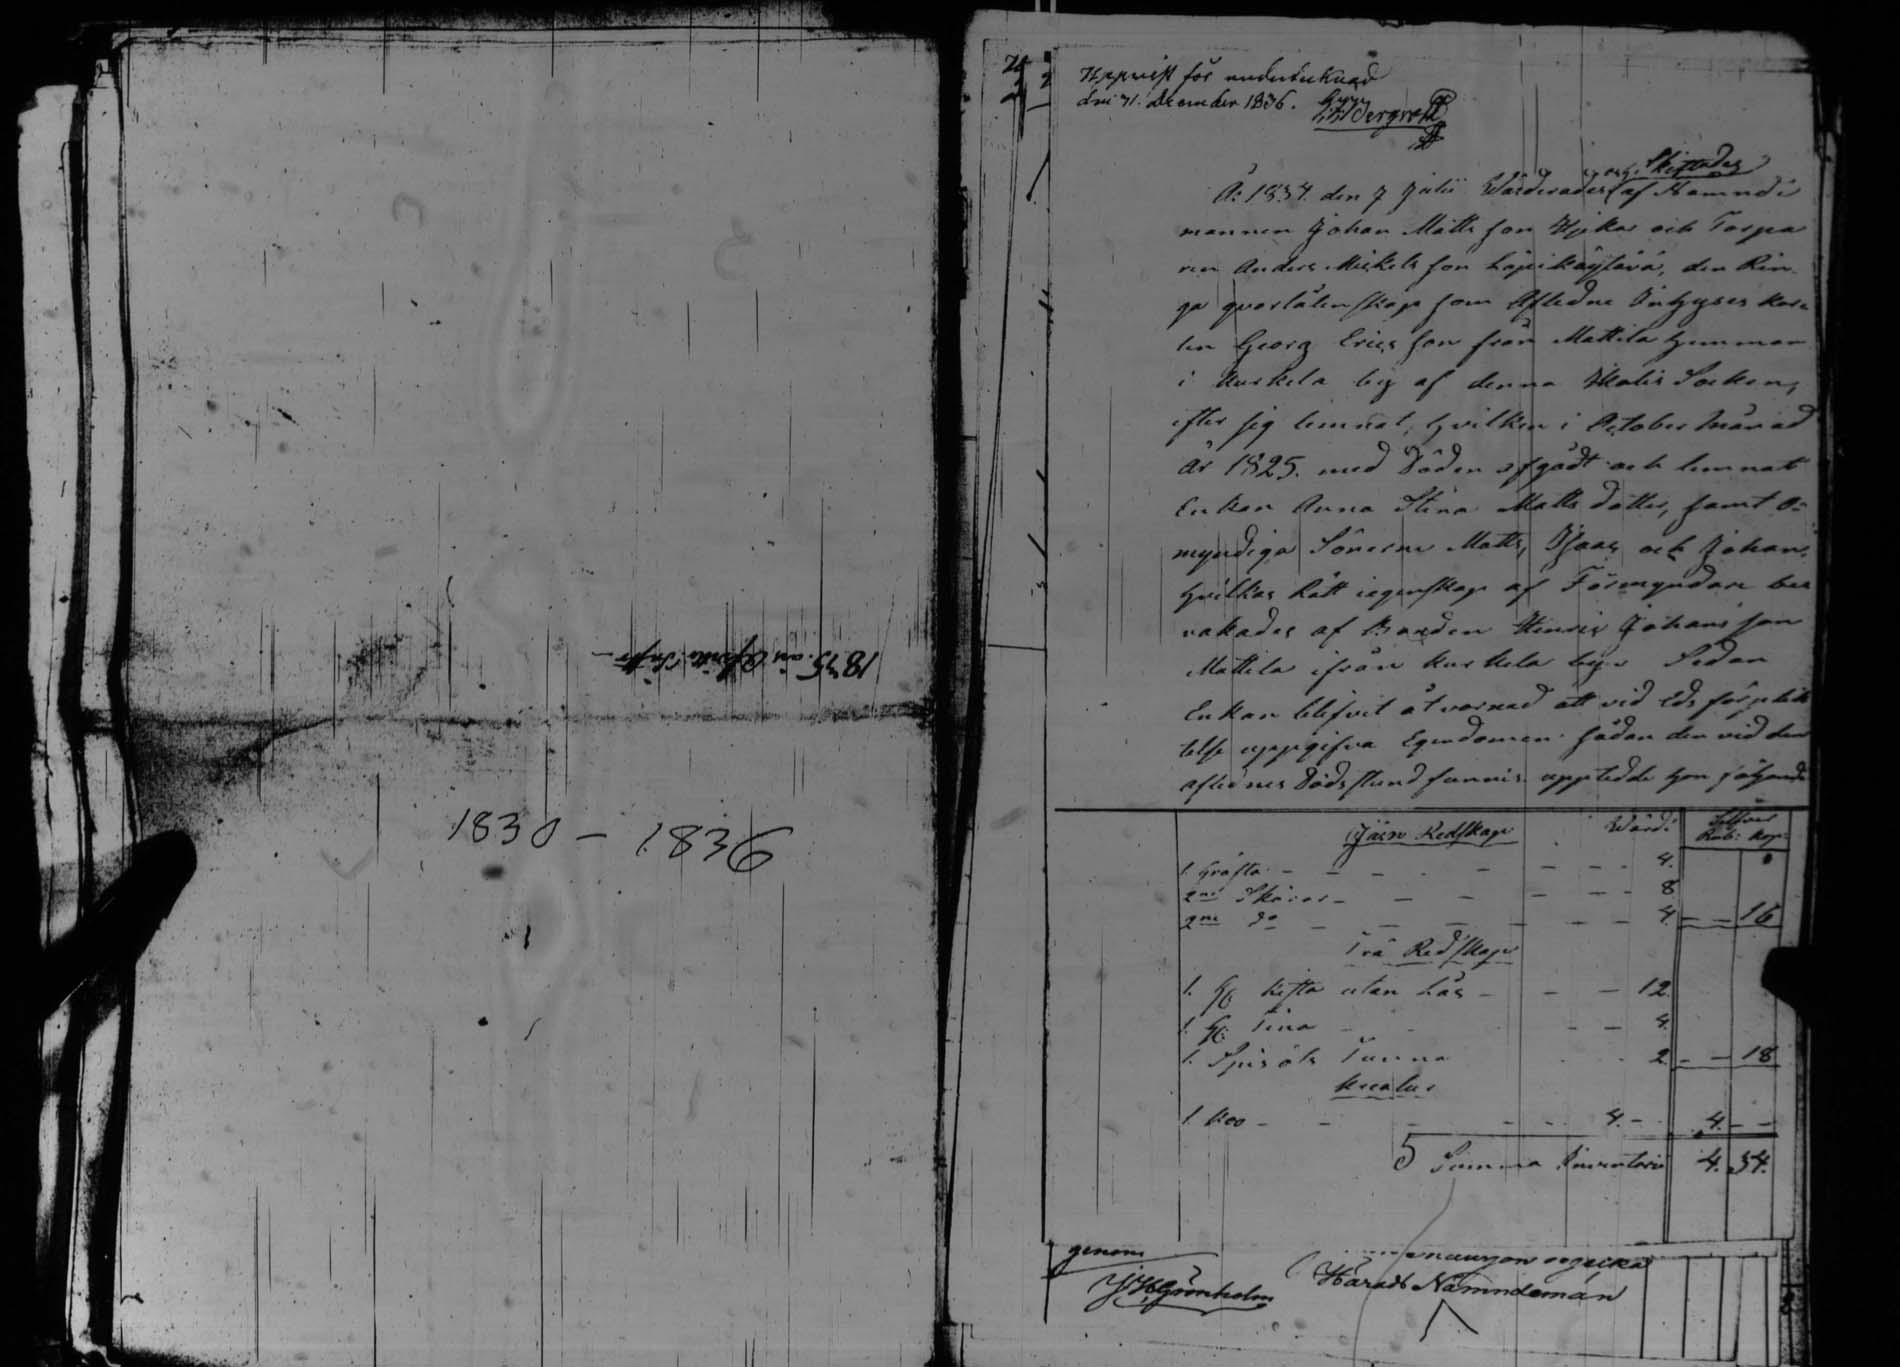 1830 - 1836
Uppvist för undertecknad
den 31. December 1836.
och Skiftades
År 1834. den 7 Julii Wärderades af Nämndе
mannen Johan Matts son Ujka och Torpa
ren Anders Mickels son den Rin-
ga qvarlåtenskap som Aflidne Inhyses kar-
len Georg Erics son från Mattila hemman
i Kurkela by af denna Ikalis Socken,
efter sig lemnat, hvilken i October Månad
År 1825. med Döden afgådt och lemnat
Enkan Anna Stina Matts dotter, samt O-
myndiga Sönerne Matts, Isaac och Johan,
hvilkas Rätt i egenskap af Förmyndare be-
vakades af Bonden Henric Johans son
Mattila ifrån Kurkela by. Sedan
Enkan blifvit åtvarnad att vid Eds förplik
telse uppgifva Egendomen sådan den vid den
aflednes Dödsstund funnis, uppteddе hon följande
Järn Redskap Wärde Silfver
Rub: Kop
1. Gräfta - - - 4.
2ne Skäror - - - 8
2ne do - - - 4. - - 16
Trä Redskap
1. Kista utan Lås - - - 12.
1. Tina - - - 4.
1. Tunna 2 - - 18
Kreatur
1. Koo - - - 4. - 4. - -
Summa Inventarii 4. 34.
genom
J H Grönholm
Härads Nämndeman